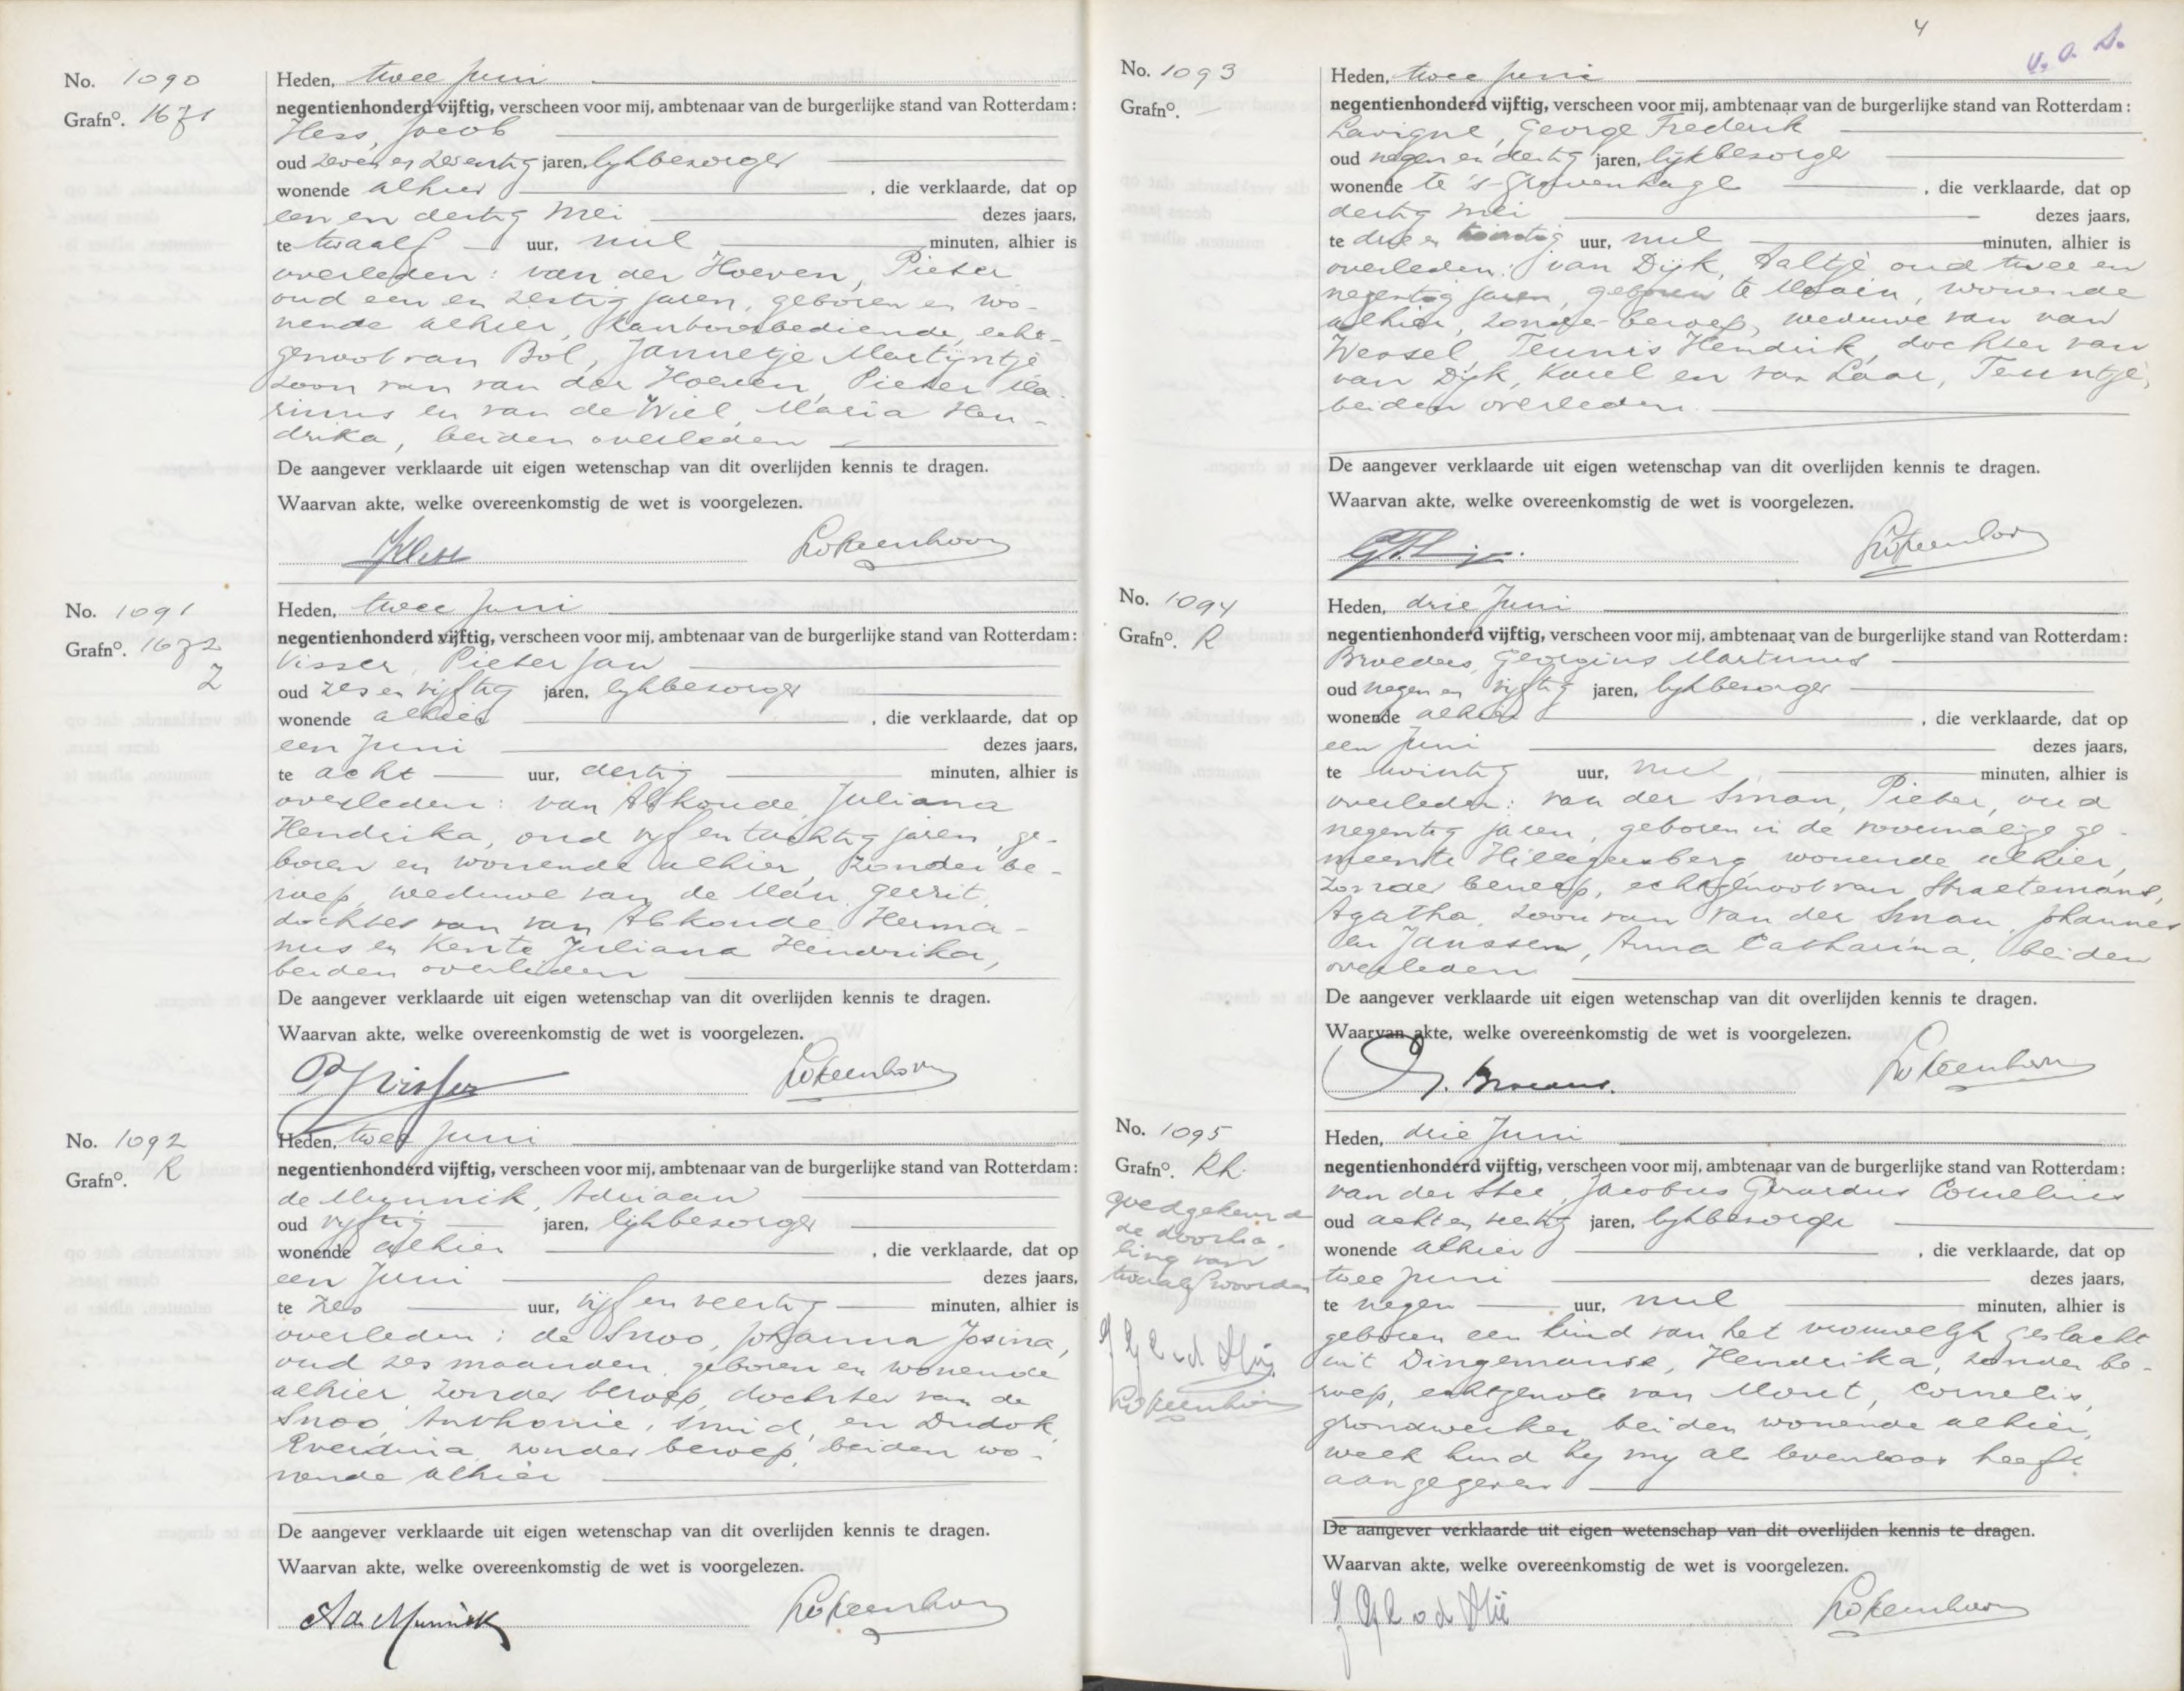 No. 1090
Grafno. 1671
Heden, twee Juni
negentienhonderd vijftig, verscheen voor mij, ambtenaar van de burgerlijke stand van Rotterdam:
Hess, Jacob
oud zeven en zeventig jaren, lijkbezorger
wonende alhier , die verklaarde, dat op
een en dertig Mei dezes jaars,
te twaalf uur, nul minuten, alhier is
overleden: van der Hoeven, Pieter
oud een en zestig jaren, geboren en wo-
nende alhier, kantoorbediende, echt-
genoot van Bol, Jannetje Martijntje
zoon van van der Hoeven, Pieter Ma-
rinus en van de Wiel, Maria Hen-
drika, beiden overleden
De aangever verklaarde uit eigen wetenschap van dit overlijden kennis te dragen.
Waarvan akte, welke overeenkomstig de wet is voorgelezen.
JHess
No. 1091
Grafno. 1672
Z
Heden, twee Juni
negentienhonderd vijftig, verscheen voor mij, ambtenaar van de burgerlijke stand van Rotterdam:
Visser, Pieter Jan
oud zes en vijftig jaren, lijkbezorger
wonende alhier , die verklaarde, dat op
een Juni dezes jaars,
te acht uur, dertig minuten, alhier is
overleden: van Abkoude, Juliana
Hendrika, oud vijf en tachtig jaren, ge-
boren en wonende alhier, zonder be-
roep, weduwe van de Man, Gerrit,
dochter van van Abkoude, Herma-
nus en Kente, Juliana Hendrika,
beiden overleden
De aangever verklaarde uit eigen wetenschap van dit overlijden kennis te dragen.
Waarvan akte, welke overeenkomstig de wet is voorgelezen.
PJVisser
No. 1092
Grafno. R
Heden, twee Juni
negentienhonderd vijftig, verscheen voor mij, ambtenaar van de burgerlijke stand van Rotterdam:
de Munnik, Adriaan
oud vijftig jaren, lijkbezorger
wonende alhier , die verklaarde, dat op
een Juni dezes jaars,
te zes uur, vijf en veertig minuten, alhier is
overleden: de Snoo, Johanna Josina,
oud zes maanden, geboren en wonende
alhier, zonder beroep, dochter van de
Snoo, Anthonie, smid, en Dudok,
Everdina, zonder beroep, beiden wo-
nende alhier
De aangever verklaarde uit eigen wetenschap van dit overlijden kennis te dragen.
Waarvan akte, welke overeenkomstig de wet is voorgelezen.
A de Munnik
4
v.a.d.
No. 1093
Grafno. -
Heden, twee Juni
negentienhonderd vijftig, verscheen voor mij, ambtenaar van de burgerlijke stand van Rotterdam:
Lavigne, George Frederik
oud negen en dertig jaren, lijkbezorger
wonende te 's-Gravenhage , die verklaarde, dat op
dertig Mei dezes jaars,
te drie en twintig uur, nul minuten, alhier is
overleden: van Dijk, Aaltje, oud twee en
negentig jaren, geboren te , wonende
alhier, zonder beroep, weduwe van van
Wessel, Teunis Hendrik, dochter van
van Dijk, Karel en van Laar, Teuntje,
beiden overleden.
De aangever verklaarde uit eigen wetenschap van dit overlijden kennis te dragen.
Waarvan akte, welke overeenkomstig de wet is voorgelezen.
No. 1094
Grafno. R
Heden, drie Juni
negentienhonderd vijftig, verscheen voor mij, ambtenaar van de burgerlijke stand van Rotterdam:
Broeders, Georgius Martinus
oud negen en vijftig jaren, lijkbezorger
wonende alhier , die verklaarde, dat op
een Juni dezes jaars,
te twintig uur, nul minuten, alhier is
overleden: van der Sman, Pieter, oud
negentig jaren, geboren in de voormalige ge-
meente Hillegersberg, wonende alhier,
zonder beroep, echtgenoot van Straetemans,
Agatha, zoon van van der Sman, Johannes
en Janssen, Anna Catharina, beiden
overleden
De aangever verklaarde uit eigen wetenschap van dit overlijden kennis te dragen.
Waarvan akte, welke overeenkomstig de wet is voorgelezen.
No. 1095
Grafno. Rk.
goedgekeurd
de doorha-
ling van
twaalf woorden
Heden, drie Juni
negentienhonderd vijftig, verscheen voor mij, ambtenaar van de burgerlijke stand van Rotterdam:
van der Slee, Jacobus Gerardus Cornelius
oud acht en veertig jaren, lijkbezorger
wonende alhier , die verklaarde, dat op
twee Juni dezes jaars,
te negen uur, nul minuten, alhier is
geboren een kind van het vrouwelijk geslacht
uit Dingemanse, Hendrika, zonder be-
roep, echtgenote van Moret, Cornelis,
grondwerker, beiden wonende alhier,
welk kind hij mij als levenloos heeft
aangegeven
De aangever verklaarde uit eigen wetenschap van dit overlijden kennis te dragen.
Waarvan akte, welke overeenkomstig de wet is voorgelezen.